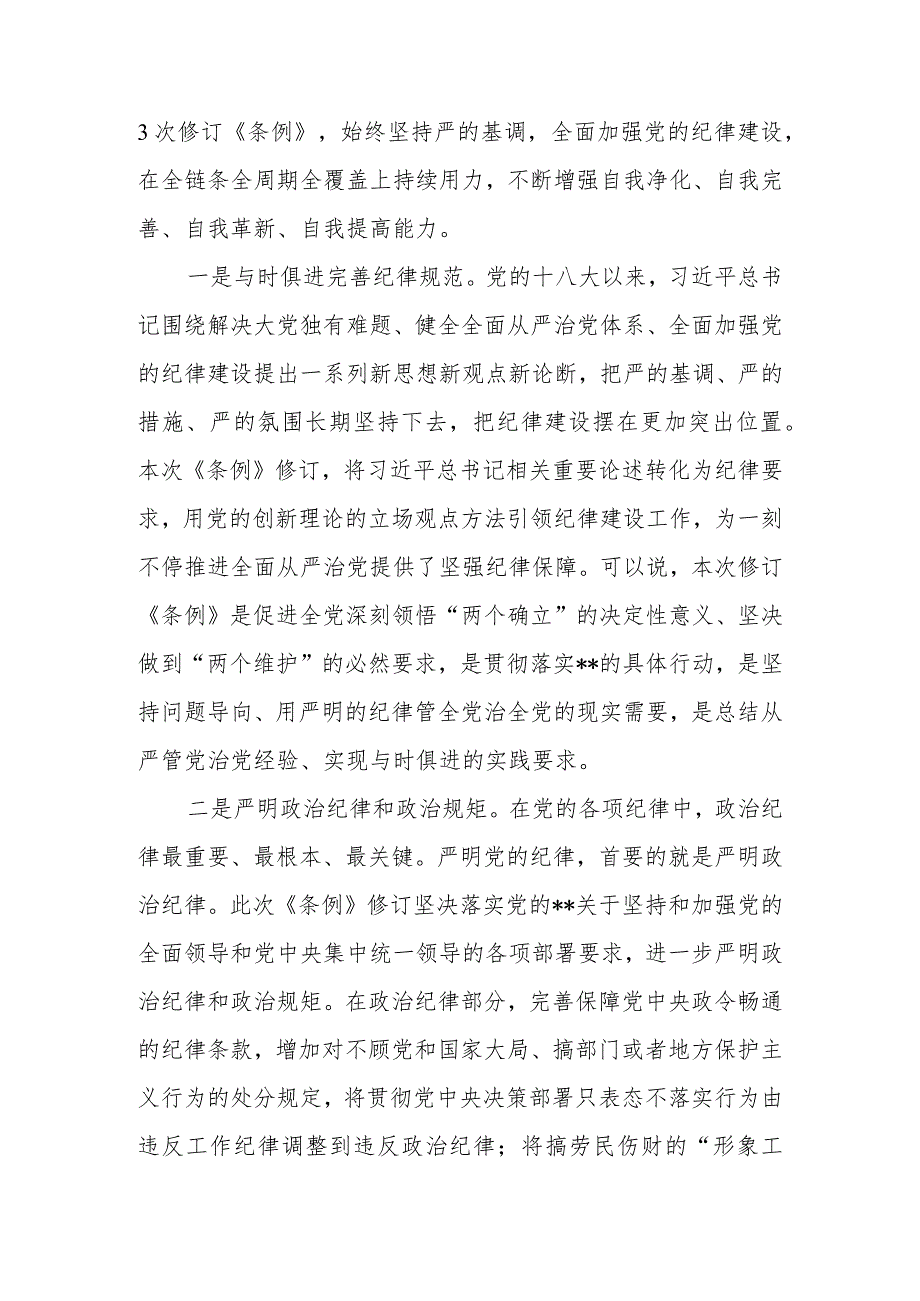 3次修订《条例》，始终坚持严的基调，全面加强党的纪律建设，
在全链条全周期全覆盖上持续用力，不断增强自我净化、自我完
善、自我革新、自我提高能力。
一是与时俱进完善纪律规范。党的十八大以来，习近平总书
记围绕解决大党独有难题、健全全面从严治党体系、全面加强党
的纪律建设提出一系列新思想新观点新论断，把严的基调、严的
措施、严的氛围长期坚持下去，把纪律建设摆在更加突出位置。
本次《条例》修订，将习近平总书记相关重要论述转化为纪律要
求，用党的创新理论的立场观点方法引领纪律建设工作，为一刻
不停推进全面从严治党提供了坚强纪律保障。可以说，本次修订
《条例》是促进全党深刻领悟“两个确立”的决定性意义、坚决
做到“两个维护”的必然要求，是贯彻落实**的具体行动，是坚
持问题导向、用严明的纪律管全党治全党的现实需要，是总结从
严管党治党经验、实现与时俱进的实践要求。
二是严明政治纪律和政治规矩。在党的各项纪律中，政治纪
律最重要、最根本、最关键。严明党的纪律，首要的就是严明政
治纪律。此次《条例》修订坚决落实党的**关于坚持和加强党的
全面领导和党中央集中统一领导的各项部署要求，进一步严明政
治纪律和政治规矩。在政治纪律部分，完善保障党中央政令畅通
的纪律条款，增加对不顾党和国家大局、搞部门或者地方保护主
义行为的处分规定，将贯彻党中央决策部署只表态不落实行为由
违反工作纪律调整到违反政治纪律；将搞劳民伤财的“形象工